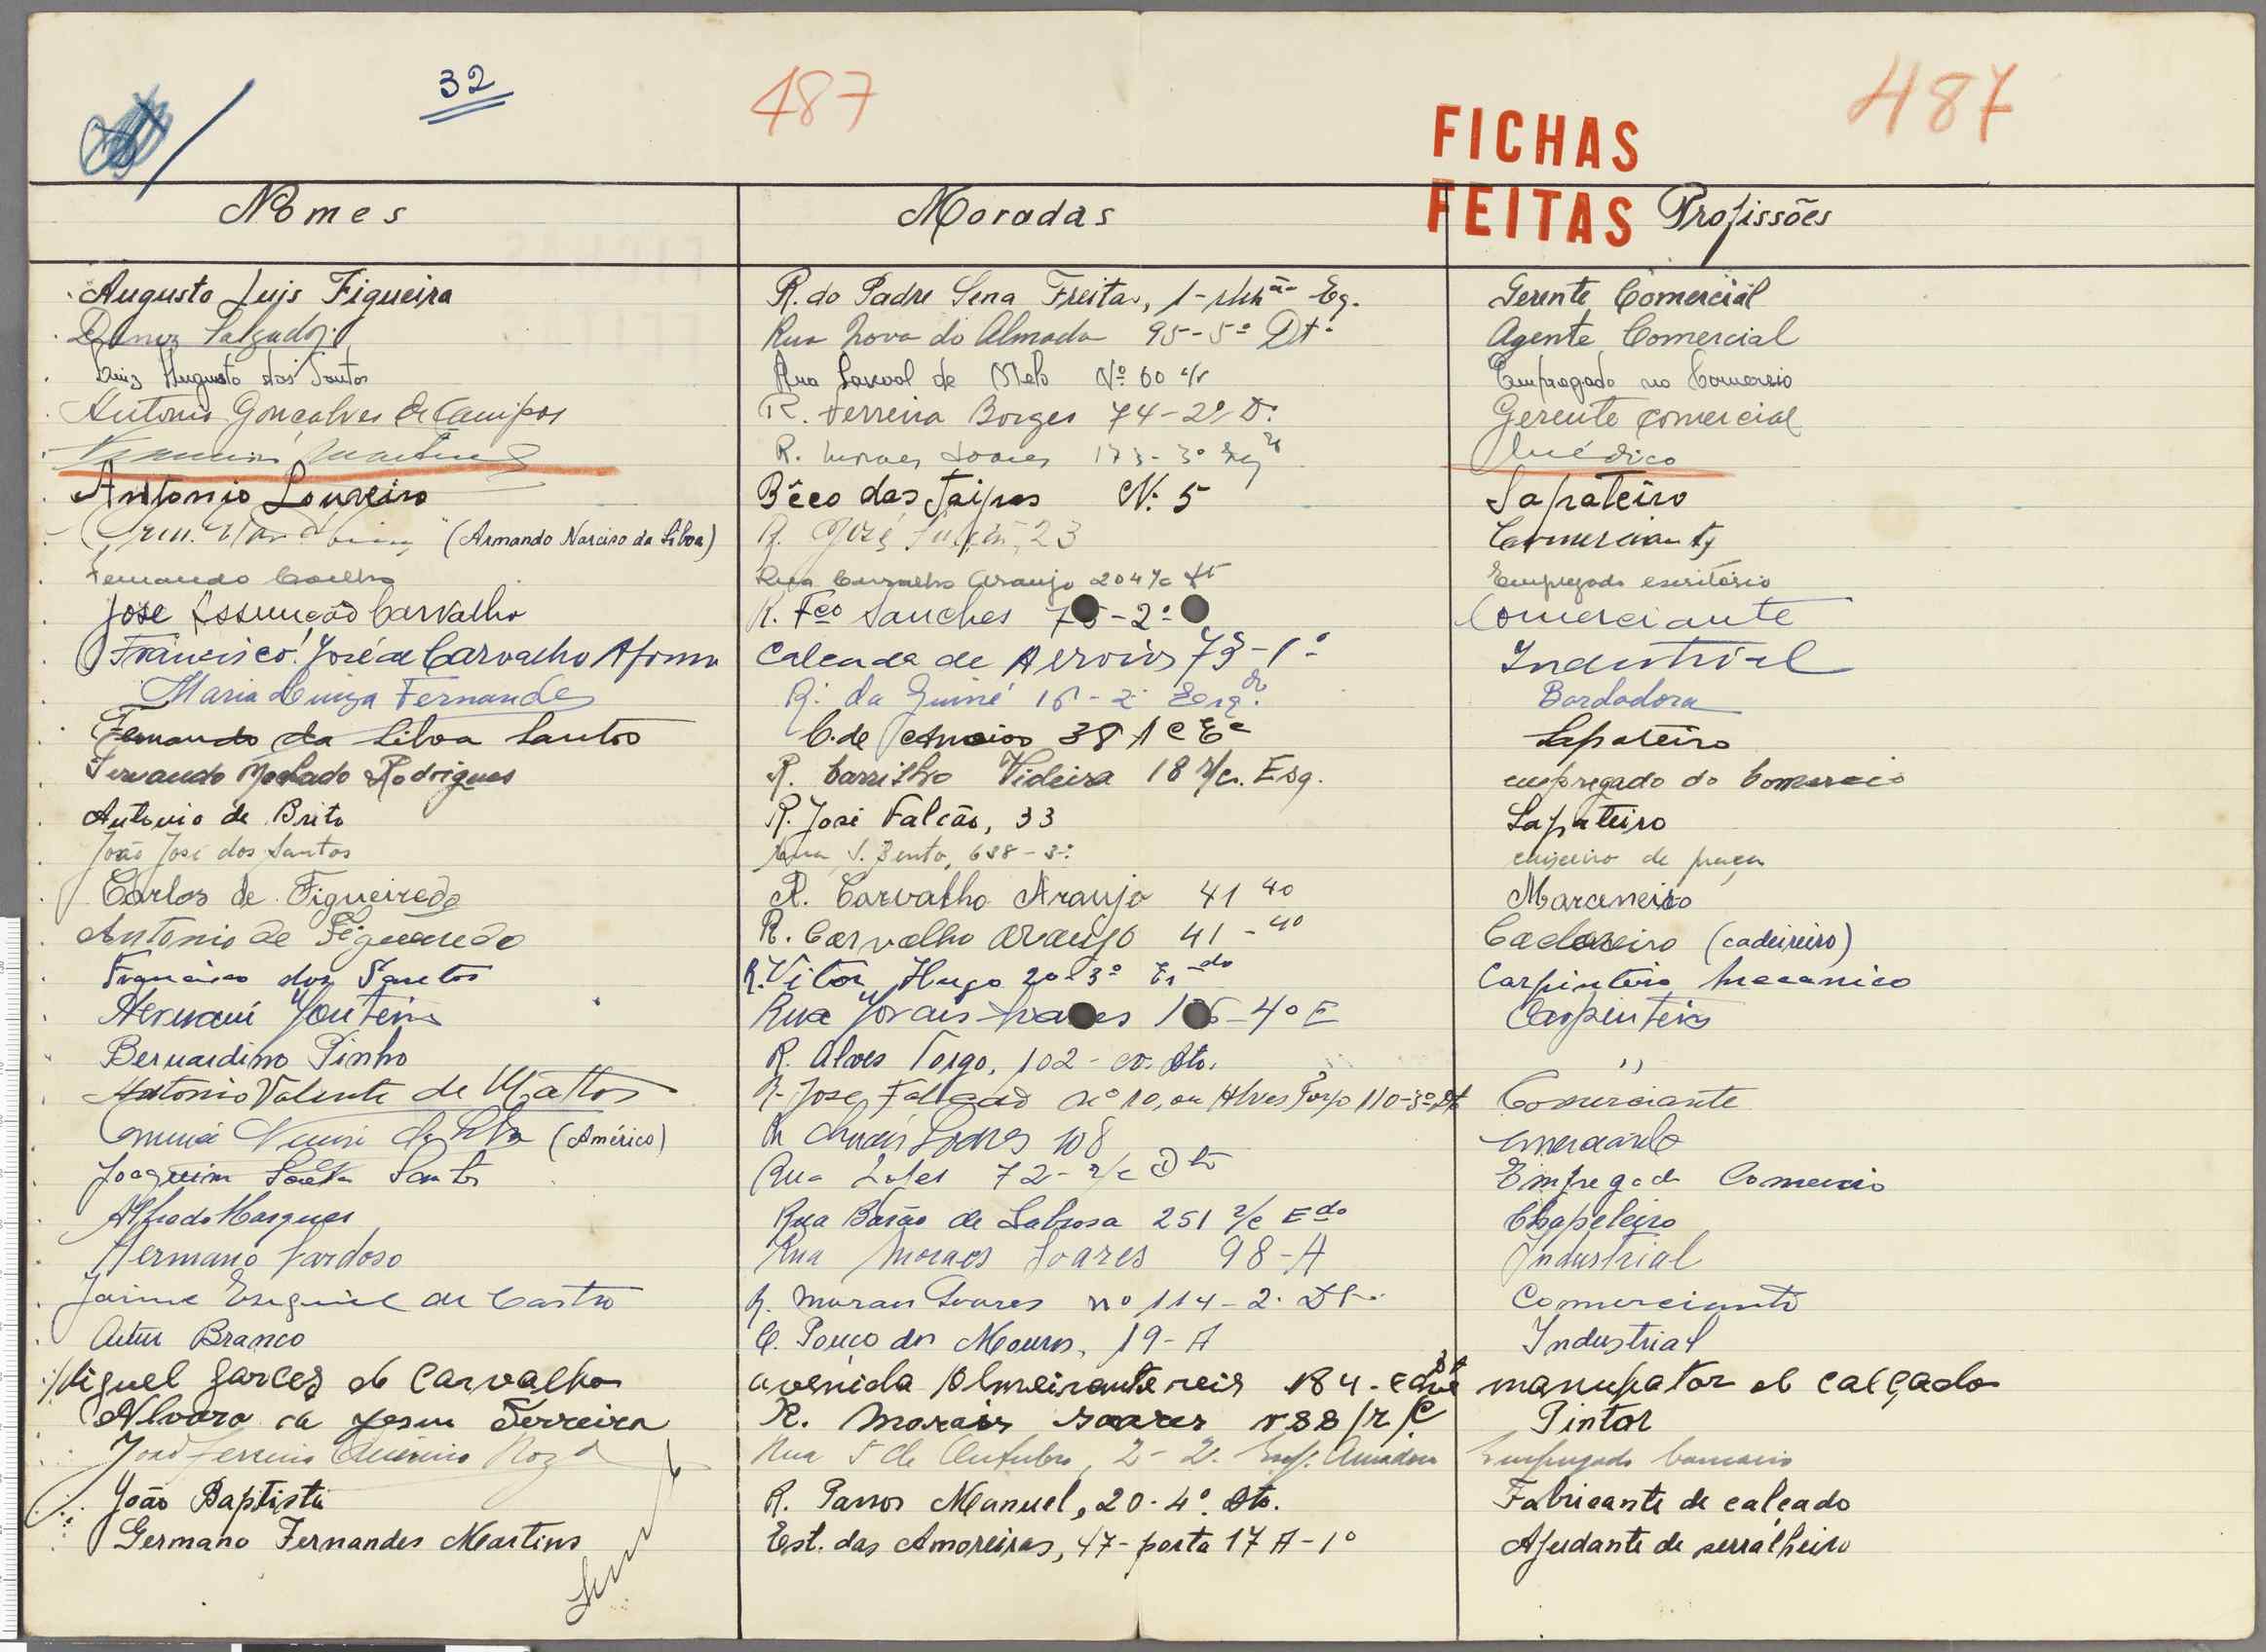 32
487
487
FICHAS
FEITAS
Nomes Moradas Profissões
Augusto Luis Figueira R. do Padre Sena Freitas, 1- Eq. Gerente Comercial
Salgado Rua Nova do Almada 95-5º Dtº Agente Comercial
Luiz Augusto dos Santos Rua de Melo Nº 60 Empregado no Comercio
Antonio Gonçalves de Campos R. Ferreira Borges 74-2º D. Gerente comercial
Martins R. Moraes Soares 173-3º Médico
Antonio Loureiro Bêco das Taipas Nº 5 Sapateiro
(Armando Narciso da Silva) R. José 23 Comerciante
Fernando Coelho Rua Carvalho Araujo 204 r/c dt Empregado escritório
José Assunção Carvalho R. Fco Sanches -2º Comerciante
Francisco José de Carvalho Afonso Calcada de Arroios 73-1º Industrial
Maria Luiza Fernandes R. da Guiné 16-2º Bordadora
Fernando da Silva Santos C. de Arroios 38 1º Eº Sapateiro
Fernando Machado Rodrigues R. Carrilho Videira 18 r/c. Esq. empregado do Comercio
Antonio de Brito R. José Falcão, 33 Sapateiro
João José dos Santos Rua S. Bento, 638-3º de praça
Carlos de Figueiredo R. Carvalho Araujo 41 40 Marceneiro
Antonio de Figueiredo R. Carvalho Araujo 41-40 (cadeireiro)
Francisco dos Santos R. Vitor Hugo 20-3º Carpinteiro Mecanico
Hernani Monteiro Rua Morais -4º E Carpinteiro
Bernardino Pinho R. Alves Torgo, 102-cv. Dto. ,,
Antonio Valente de Mattos R. José Falcão nº 10, ou Alves Torgo 110-3º Dt Comerciante
da Silva (Américo) R. Morais Soares 108
Joaquim Santos Rua 72- r/c Dto Empregado Comercio
Alfredo Marques Rua Barão de Sabrosa 251 r/c Edo Chapeleiro
Hermano Cardoso Rua Moraes Soares 98-A Industrial
Jaime Esequiel de Castro R. Morais Soares nº 114-2º Dt. Comerciante
Artur Branco C. Poço dos Mouros, 19-A Industrial
Miguel Garcez de Carvalho avenida Almeirante reis 184- manupator de calçado
Alvaro de Jesus Ferreira R. Morais Soares /r/c Pintor
João Rua 5 de Outubro, 2-2º Amadora Empregado
João Baptista R. Passos Manuel, 20-4º Dto. Fabricante de calçado
Germano Fernandes Martins Est. das Amoreiras, 47-porta 17 A-1º Ajudante de serralheiro